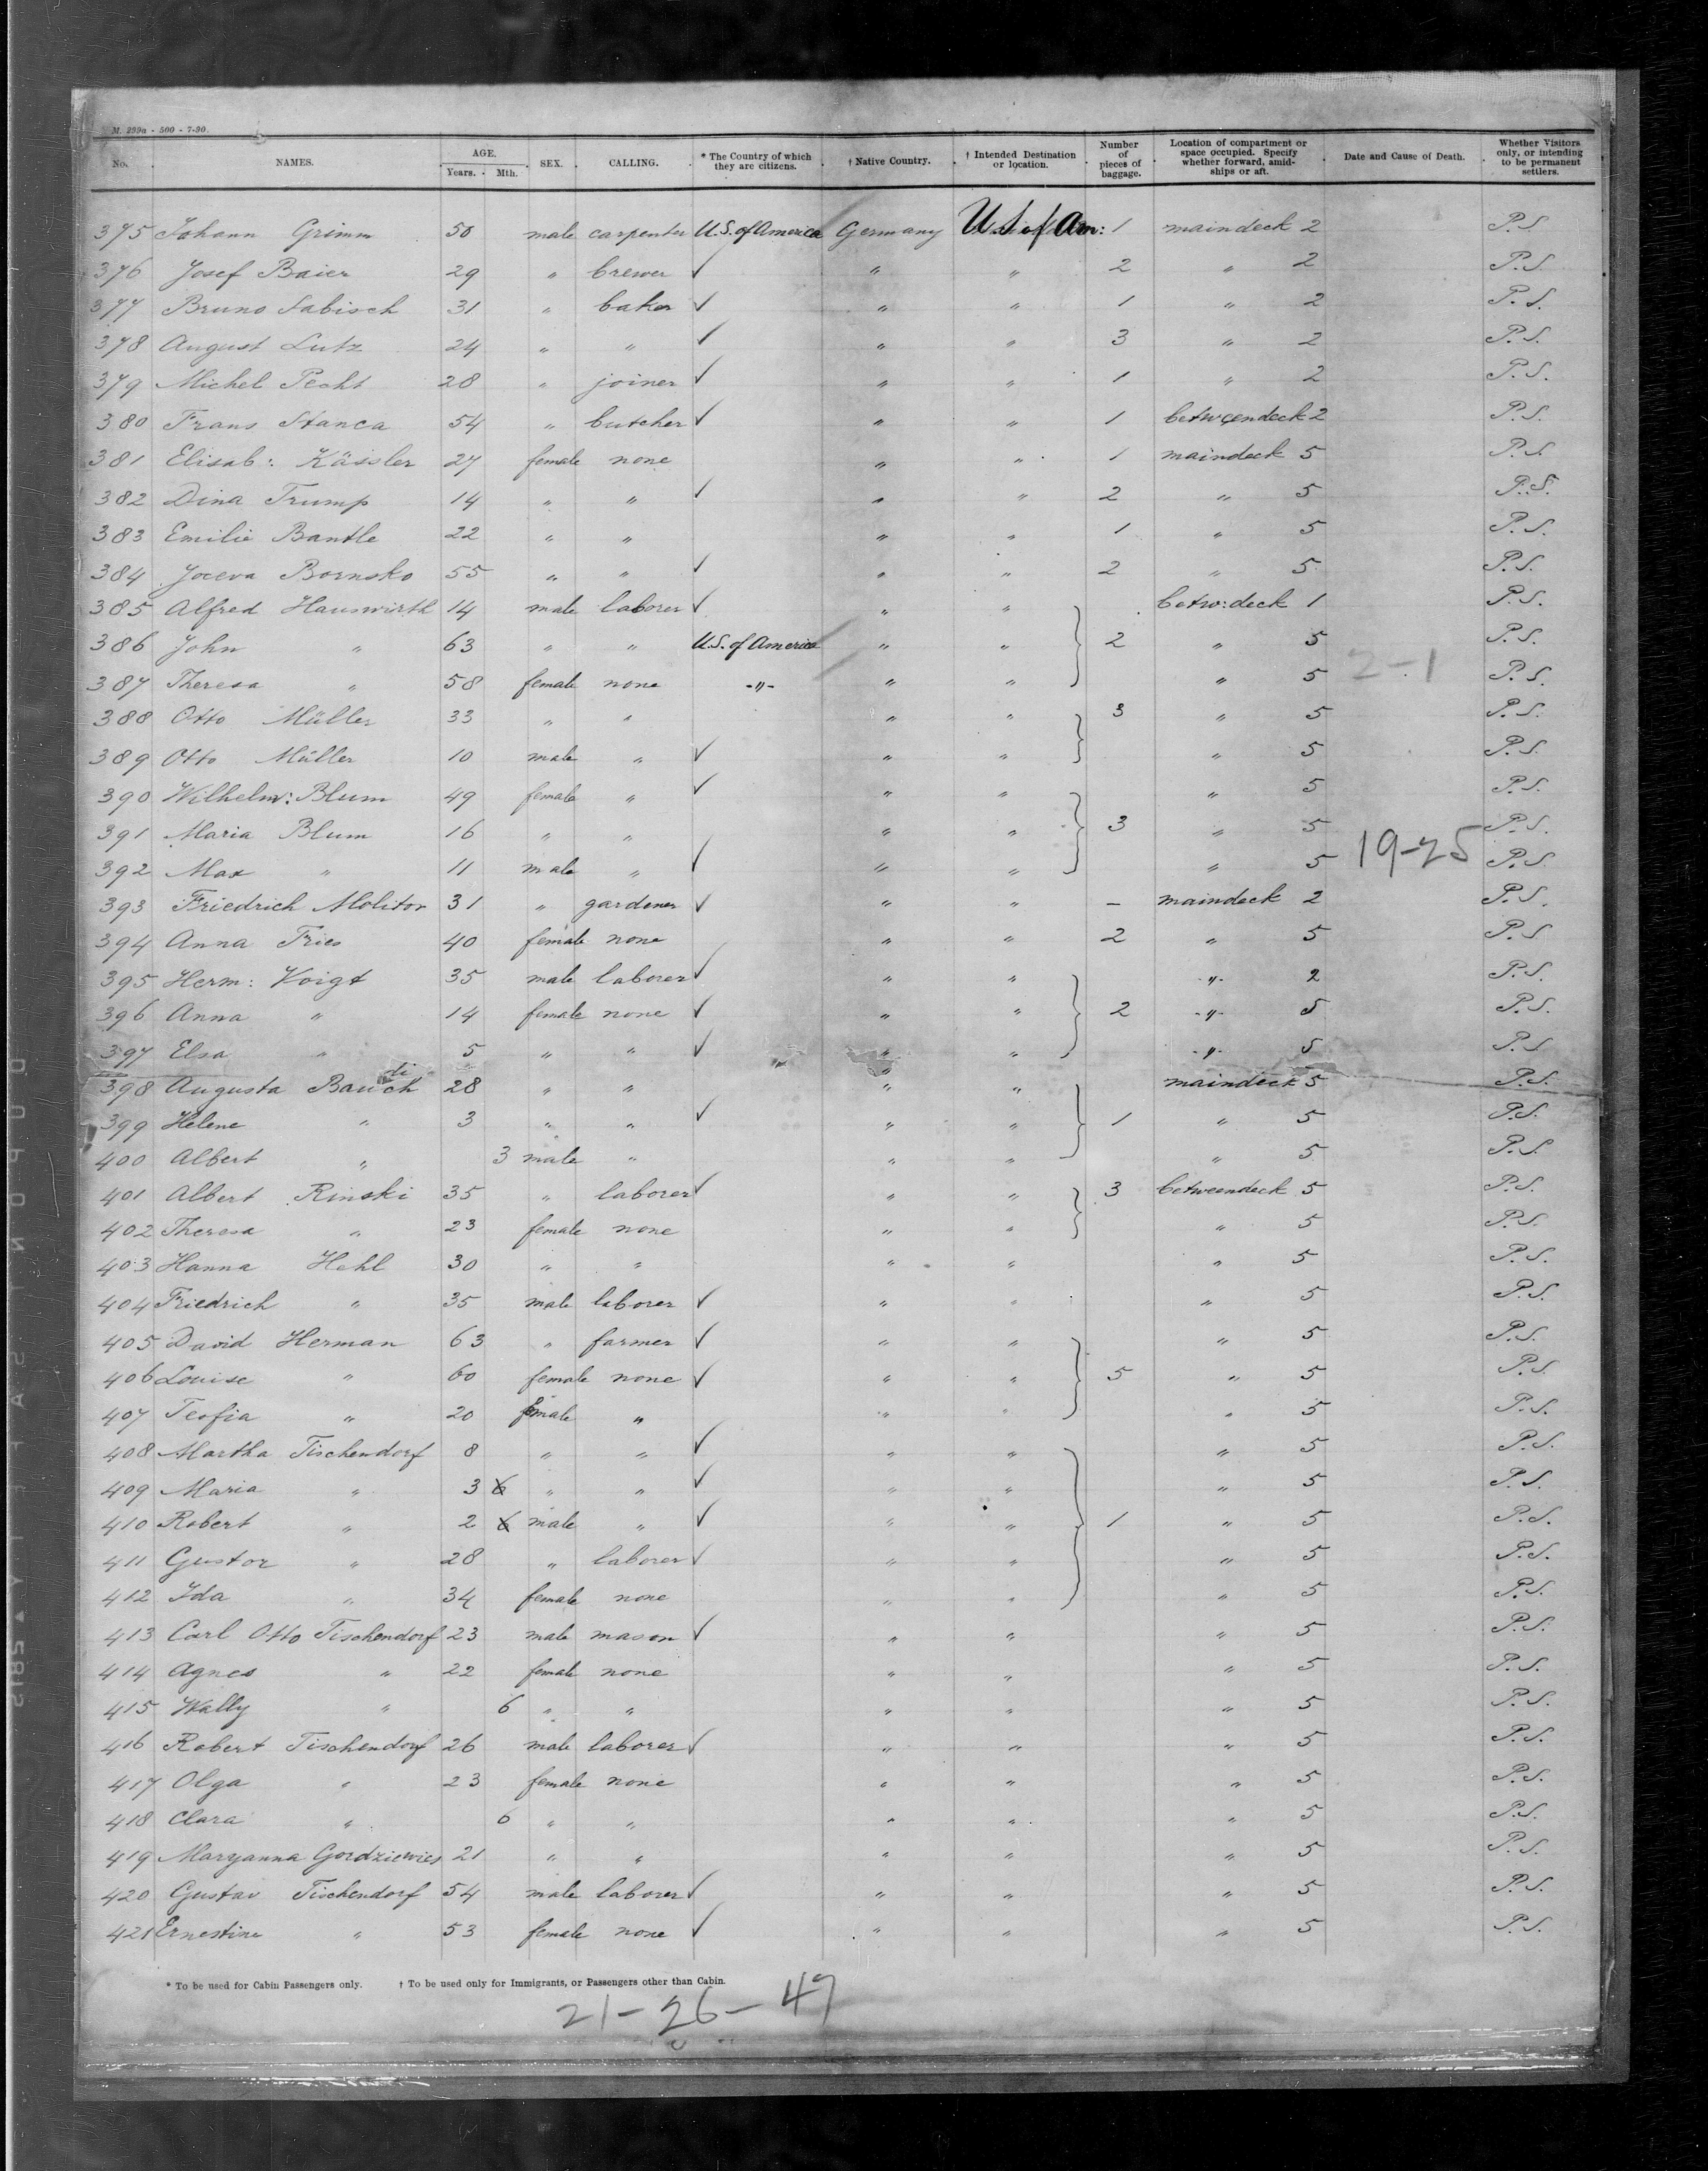 M. 299a - 500 - 7-90.
No. NAMES. AGE. Years. Mth. SEX. CALLING. * The Country of which they are citizens. † Native Country. † Intended Destination or location. Number of pieces of baggage. Location of compartment or space occupied. Specify whether forward, amidships or aft. Date and Cause of Death. Whether Visitors only, or intending to be permanent settlers.
375 Johann Grimm 50 male carpenter U.S. of America Germany U.S. of Am: 1 maindeck 2 P.S.
376 Josef Baier 29 " brewer ✓ " " 2 " 2 P.S.
377 Bruno Sabisch 31 " baker ✓ " " 1 " 2 P.S.
378 August Lutz 24 " " ✓ " " 3 " 2 P.S.
379 Michel Pecht 28 " joiner ✓ " " 1 " 2 P.S.
380 Frans Stanca 54 " butcher ✓ " " 1 betweendeck 2 P.S.
381 Elisab: Kässler 27 female none " " 1 maindeck 5 P.S.
382 Dina Trump 14 " " ✓ " " 2 " 5 P.S.
383 Emilie Bantle 22 " " " " 1 " 5 P.S.
384 Joceva Bornsko 55 " " ✓ " " 2 " 5 P.S.
385 Alfred Hauswirth 14 male laborer ✓ " " betw:deck 1 P.S.
386 John " 63 " " U.S. of America " " 2 " 5 P.S.
387 Theresa " 58 female none -"- " " " 5 2-1 P.S.
388 Otto Müller 33 " " " " 3 " 5 P.S.
389 Otto Müller 10 male " ✓ " " " 5 P.S.
390 Wilhelm: Blum 49 female " ✓ " " " 5 P.S.
391 Maria Blum 16 " " " " 3 " 5 P.S.
392 Max " 11 male " ✓ " " " 5 19-25 P.S.
393 Friedrich Molitor 31 " gardener ✓ " " - maindeck 2 P.S.
394 Anna Fries 40 female none " " 2 " 5 P.S.
395 Herm: Voigt 35 male laborer ✓ " " -"- 2 P.S.
396 Anna " 14 female none ✓ " " 2 -"- 5 P.S.
397 Elsa " 5 " " ✓ " " -"- 5 P.S.
398 Augusta Bauch 28 " " " " maindeck 5 P.S.
399 Helene " 3 " " ✓ " " 1 " 5 P.S.
400 Albert " 3 male " " " " 5 P.S.
401 Albert Rinski 35 " laborer ✓ " " 3 betweendeck 5 P.S.
402 Theresa " 23 female none " " " 5 P.S.
403 Hanna Hehl 30 " " " " " 5 P.S.
404 Friedrich " 35 male laborer ✓ " " " 5 P.S.
405 David Herman 63 " farmer ✓ " " " 5 P.S.
406 Louise " 60 female none ✓ " " 5 " 5 P.S.
407 Teofia " 20 female " " " " 5 P.S.
408 Martha Tischendorf 8 " " ✓ " " " 5 P.S.
409 Maria " 3 6 " " ✓ " " " 5 P.S.
410 Robert " 2 6 male " ✓ " " 1 " 5 P.S.
411 Gustor " 28 " laborer ✓ " " " 5 P.S.
412 Ida " 34 female none " " " 5 P.S.
413 Carl Otto Tischendorf 23 male mason ✓ " " " 5 P.S.
414 Agnes " 22 female none " " " 5 P.S.
415 Wally " 6 " " " " " 5 P.S.
416 Robert Tischendorf 26 male laborer ✓ " " " 5 P.S.
417 Olga " 23 female none " " " 5 P.S.
418 Clara " 6 " " " " " 5 P.S.
419 Maryanna Gordziewics 21 " " " " " 5 P.S.
420 Gustav Tischendorf 54 male laborer ✓ " " " 5 P.S.
421 Ernestine " 53 female none ✓ " " " 5 P.S.
* To be used for Cabin Passengers only. † To be used only for Immigrants, or Passengers other than Cabin.
21-26-47